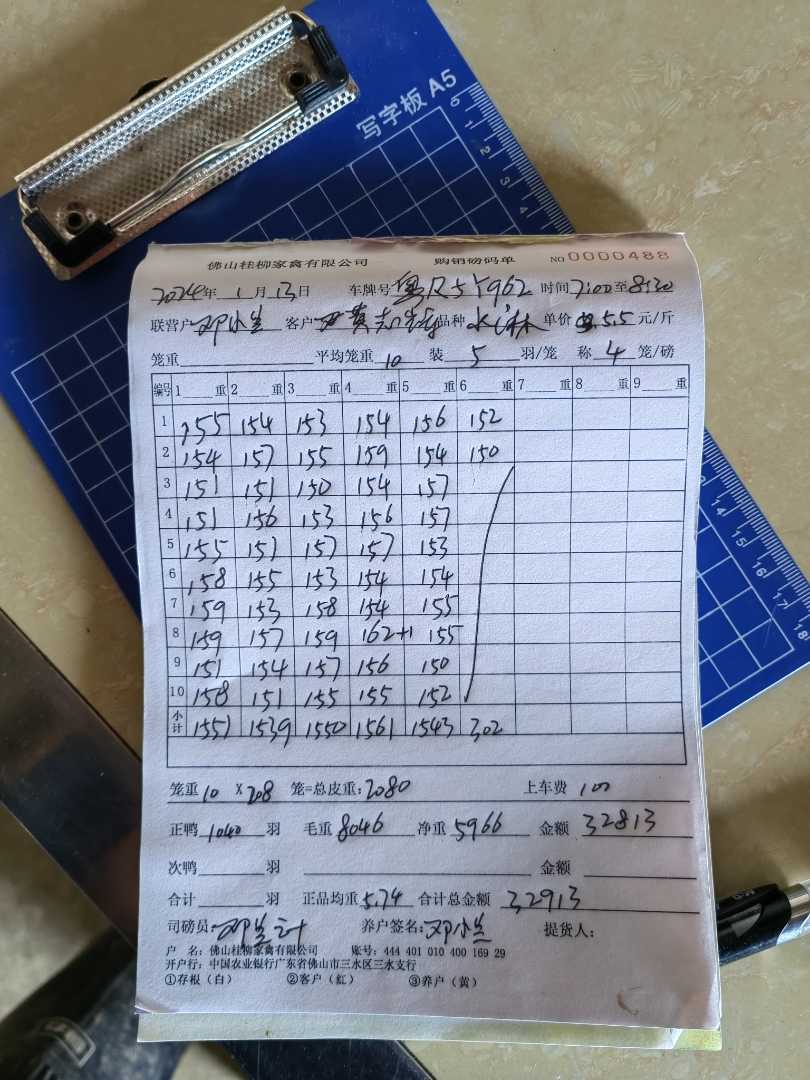 写字板 A5
0 1 2 3 4
14 15 16 17 18
佛山桂柳家禽有限公司 购销磅码单 NO 0000488
2024年 1月13日 车牌号 粤R5Y962 时间 7:00至8:30
联营户 邓小兰 客户 黄志 品种 水 单价 5.5 元/斤
笼重 平均笼重 10 装 5 羽/笼 称 4 笼/磅
编号 1 重 2 重 3 重 4 重 5 重 6 重 7 重 8 重 9 重
1 155 154 153 154 156 152
2 154 157 155 159 154 150
3 151 151 150 154 157
4 151 156 153 156 157
5 155 151 157 157 153
6 158 155 153 154 154
7 159 153 158 154 155
8 159 157 159 162+1 155
9 151 154 157 156 150
10 158 151 155 155 152
小计 1551 1539 1550 1561 1543 302
笼重 10 X 208 笼=总皮重: 2080 上车费 100
正鸭 1040 羽 毛重 8046 净重 5966 金额 32813
次鸭 羽 金额
合计 羽 正品均重 5.74 合计总金额 32913
司磅员: 养户签名: 邓小兰 提货人:
户 名: 佛山桂柳家禽有限公司 账号: 444 401 010 400 169 29
开户行: 中国农业银行广东省佛山市三水区三水支行
①存根（白） ②客户（红） ③养户（黄）